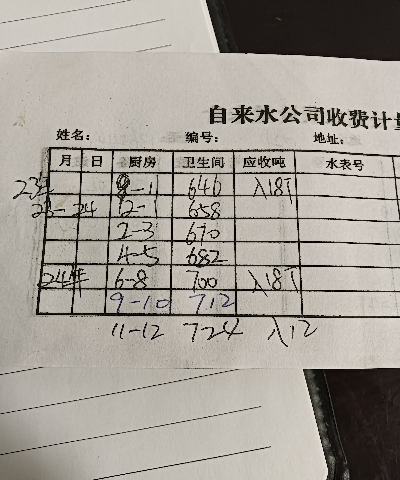 自来水公司收费计量
姓名: 编号: 地址:
月 日 厨房 卫生间 应收吨 水表号
23年 9-11 646 入18吨
23-24 12-1 658
2-3 670
4-5 682
24年 6-8 700 入18吨
9-10 712
11-12 724 入12